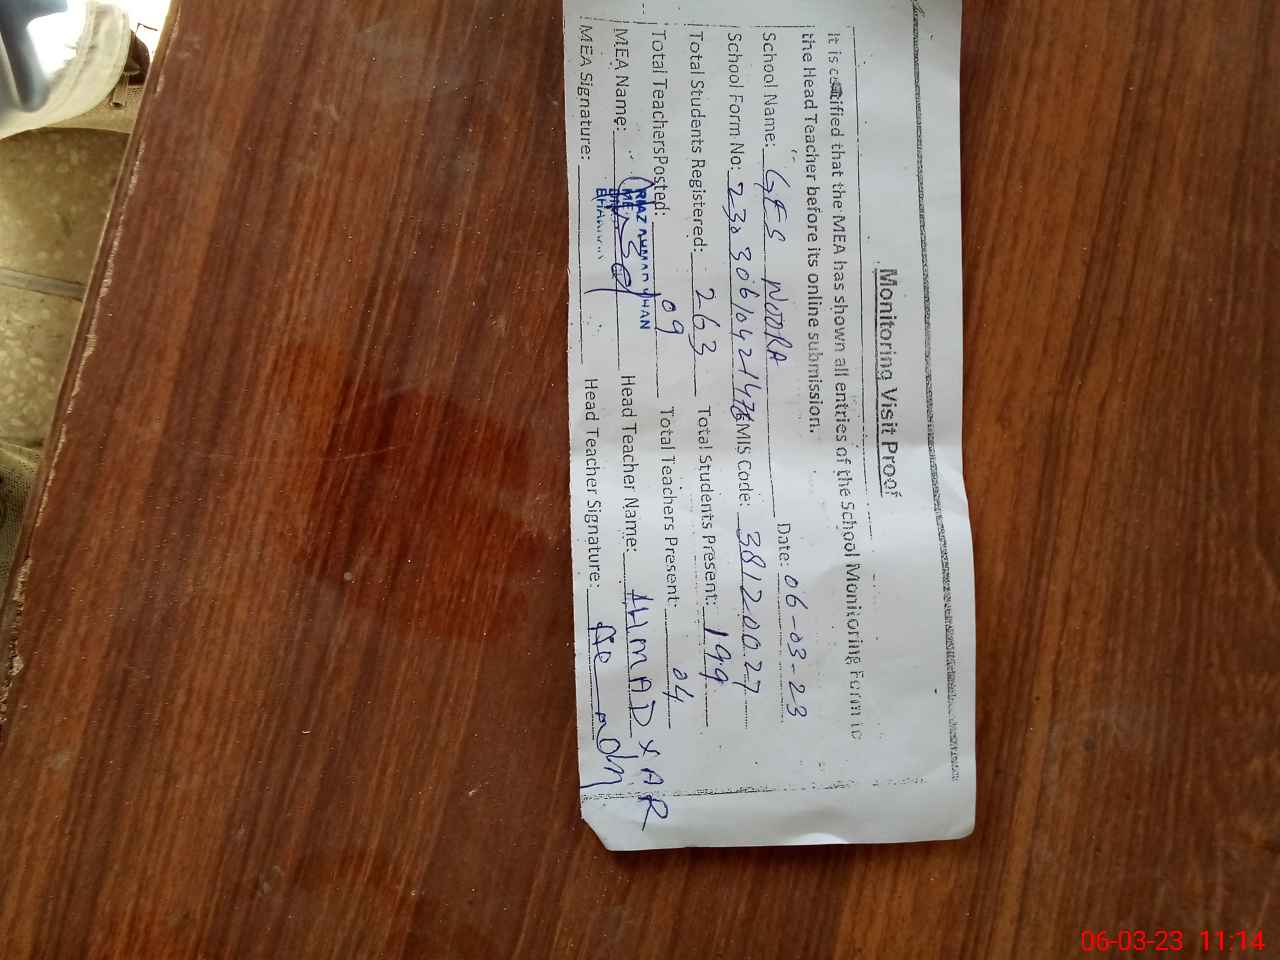 Monitoring Visit Proof
It is certified that the MEA has shown all entries of the School Monitoring Form to
the Head Teacher before its online submission.
School Name: GES NODRA Date: 06-03-23
School Form No: MIS Code: 38120027
Total Students Registered: 263 Total Students Present: 199
Total TeachersPosted: 09 Total Teachers Present: 04
MEA Name: RIAZ AHMAD KHAN Head Teacher Name: AHMAD YAR
MEA Signature: Head Teacher Signature:
06-03-23 11:14